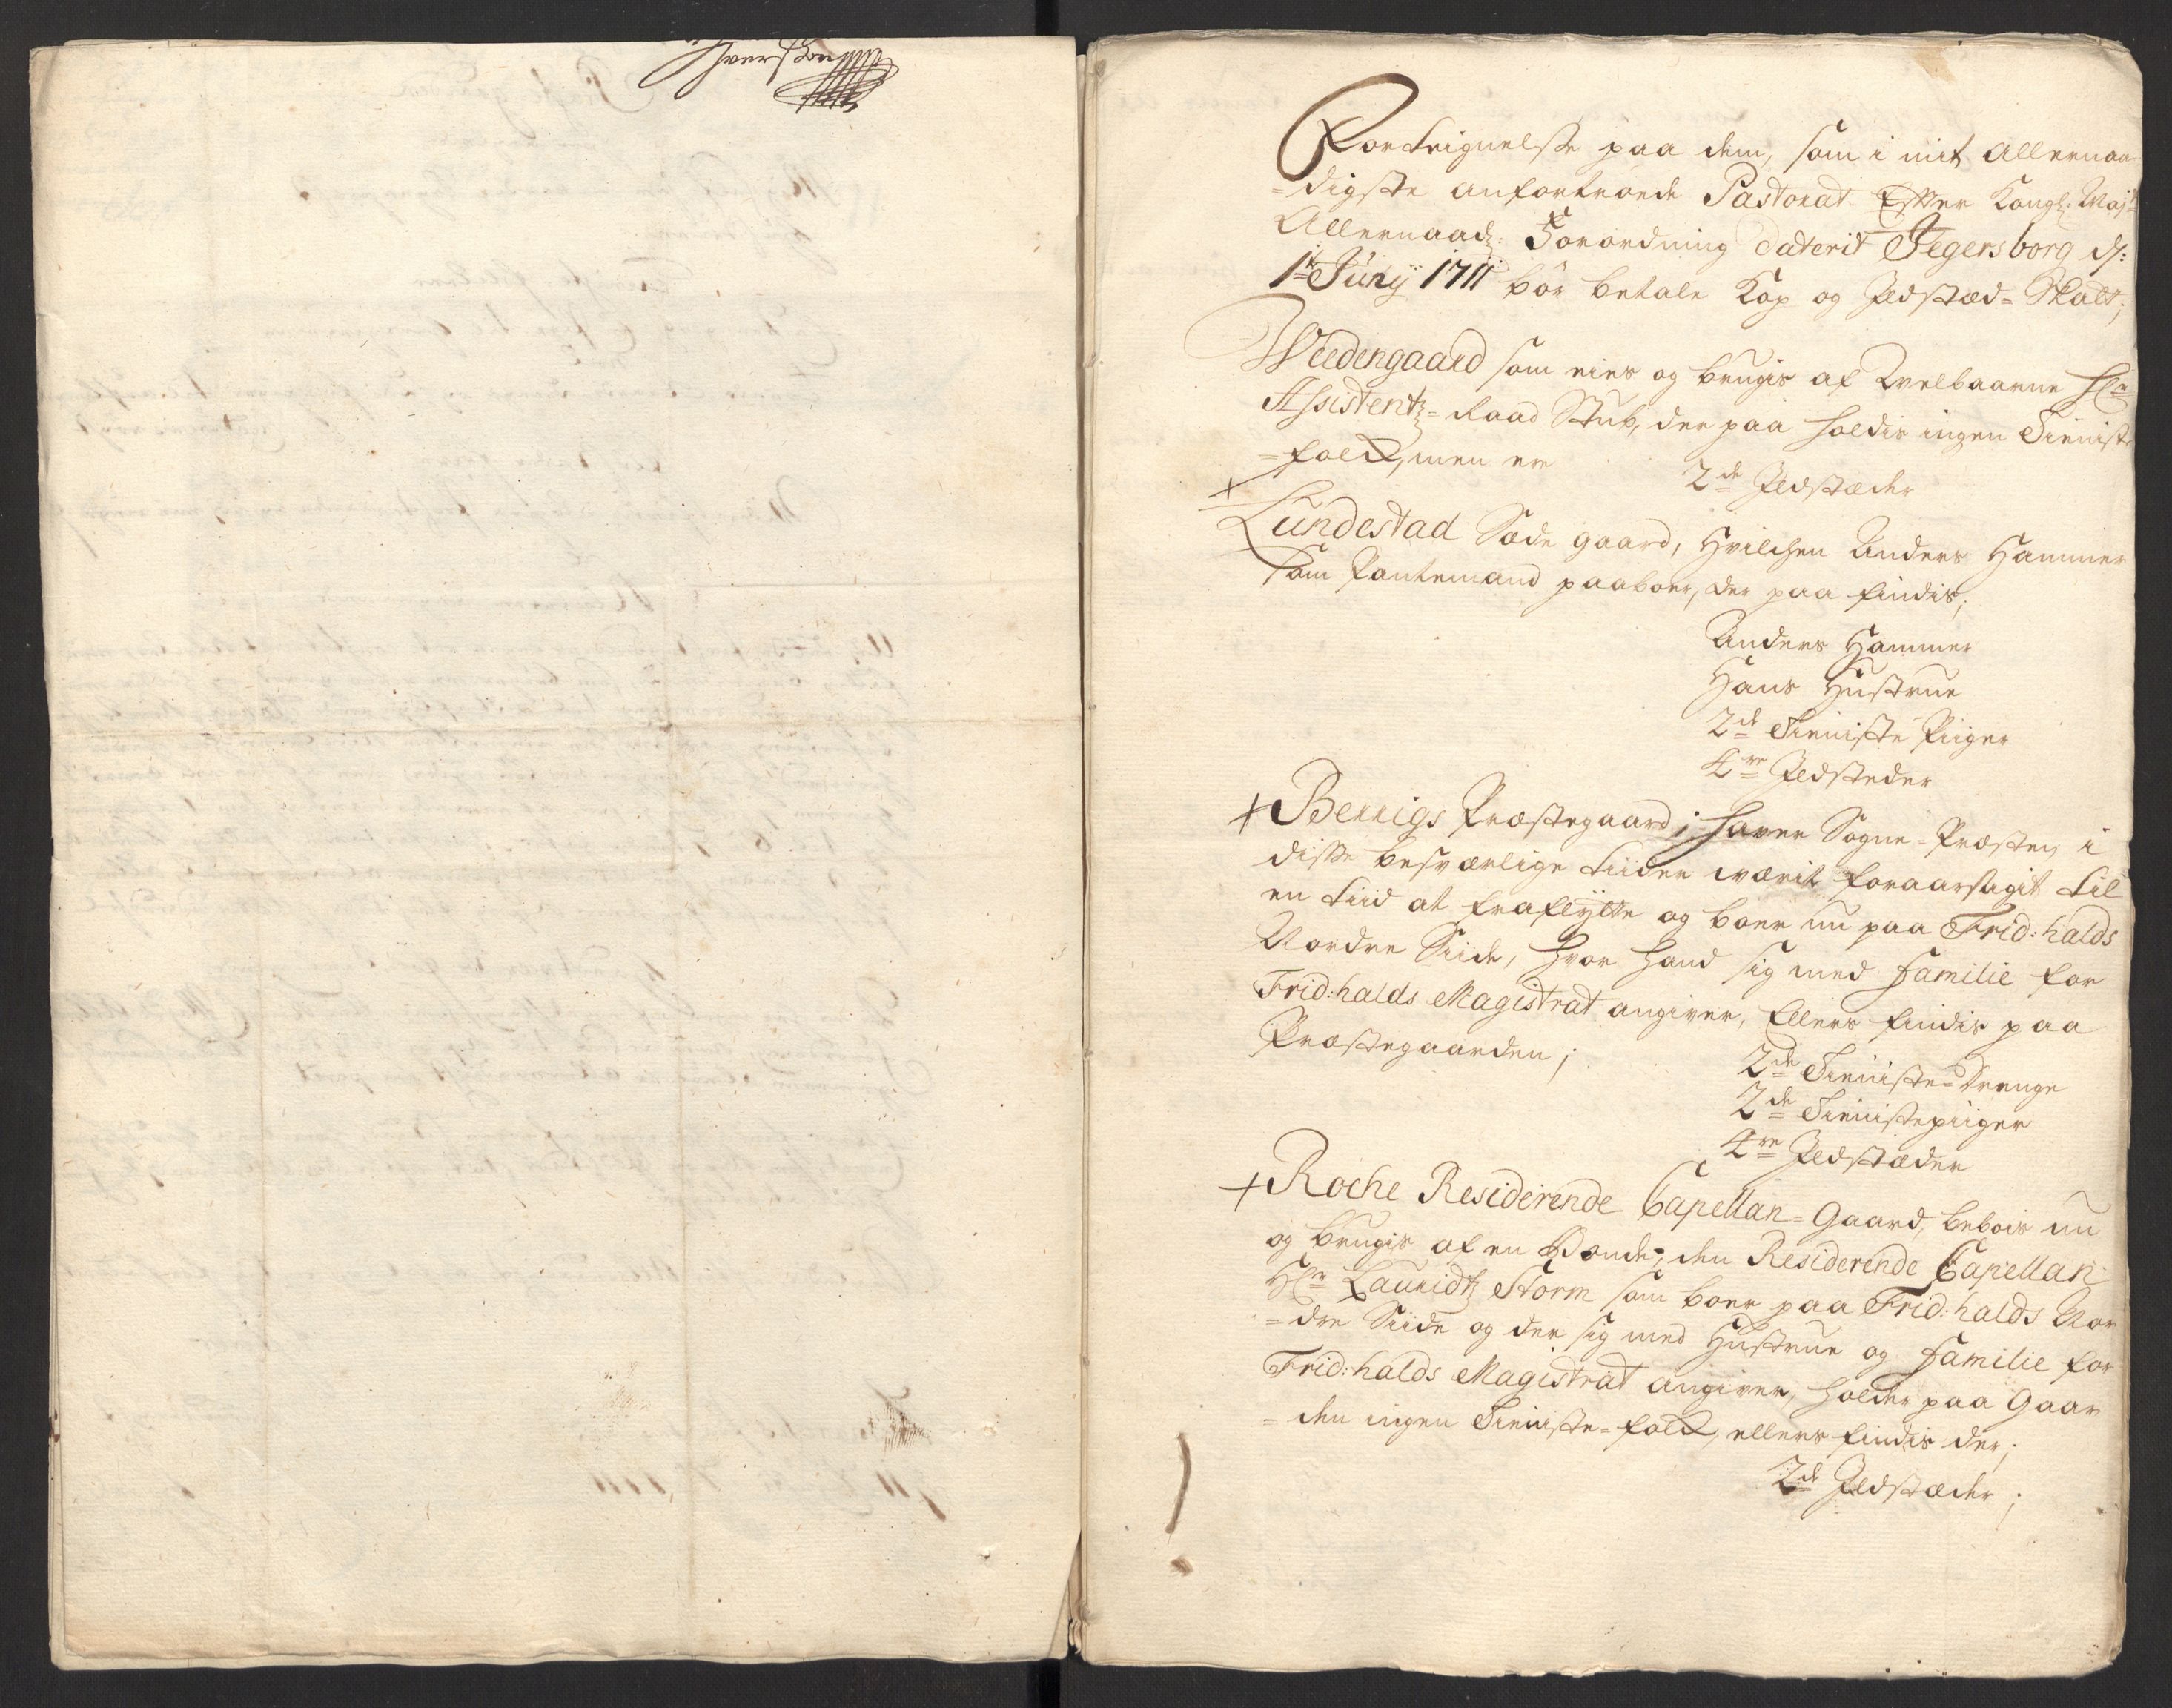 Iverssøn
Forteignelse paa dem, som i mit Allernaa
=digste anfortroede Pastorat Efter Kongl: Maj:ts
Allernaad: Forordning daterit Jegersborg d:
1te Junij 1711 bør betale Kop og Jldstæd=Skatt;
Weedengaard som eies og brugis af Welbaarne Hr:
Assistentz=Raad Stub, der paa holdis ingen Tieniste
=folck, men er 2de Jldstæder
Lundestad Sæde gaard, Hvilchen Anders Hammer
som Pantemand paaboer, der paa findis;
Anders Hammer
Hans Hustrue
2de Tieniste Piiger
4re Jldsteder
+ Berrigs Præstegaard; haver Sogne=Præsten i
disse besværlige tiider værit foraarsagit til
en tiid at fraflytte og boer nu paa Frid:halds
Nordre Siide, hvor hand sig med familie for
Frid:halds Magistrat angiver, Ellers findis paa
Præstegaarden;
2de Tieniste=Drenge
2de Tienistepiiger
4re Jldstæder
+ Roche Residerende Capellan=Gaard, bebois nu
og brugis af en Bonde, den Residerende Capellan
Hr: Lauridtz Storm som boer paa Frid:halds Nor
=dre Siide og der sig med Hustrue og familie for
Frid:halds Magistrat angiver, holder paa Gaar
=den ingen Tieniste=folck, ellers findis der;
2de Jldstæder;